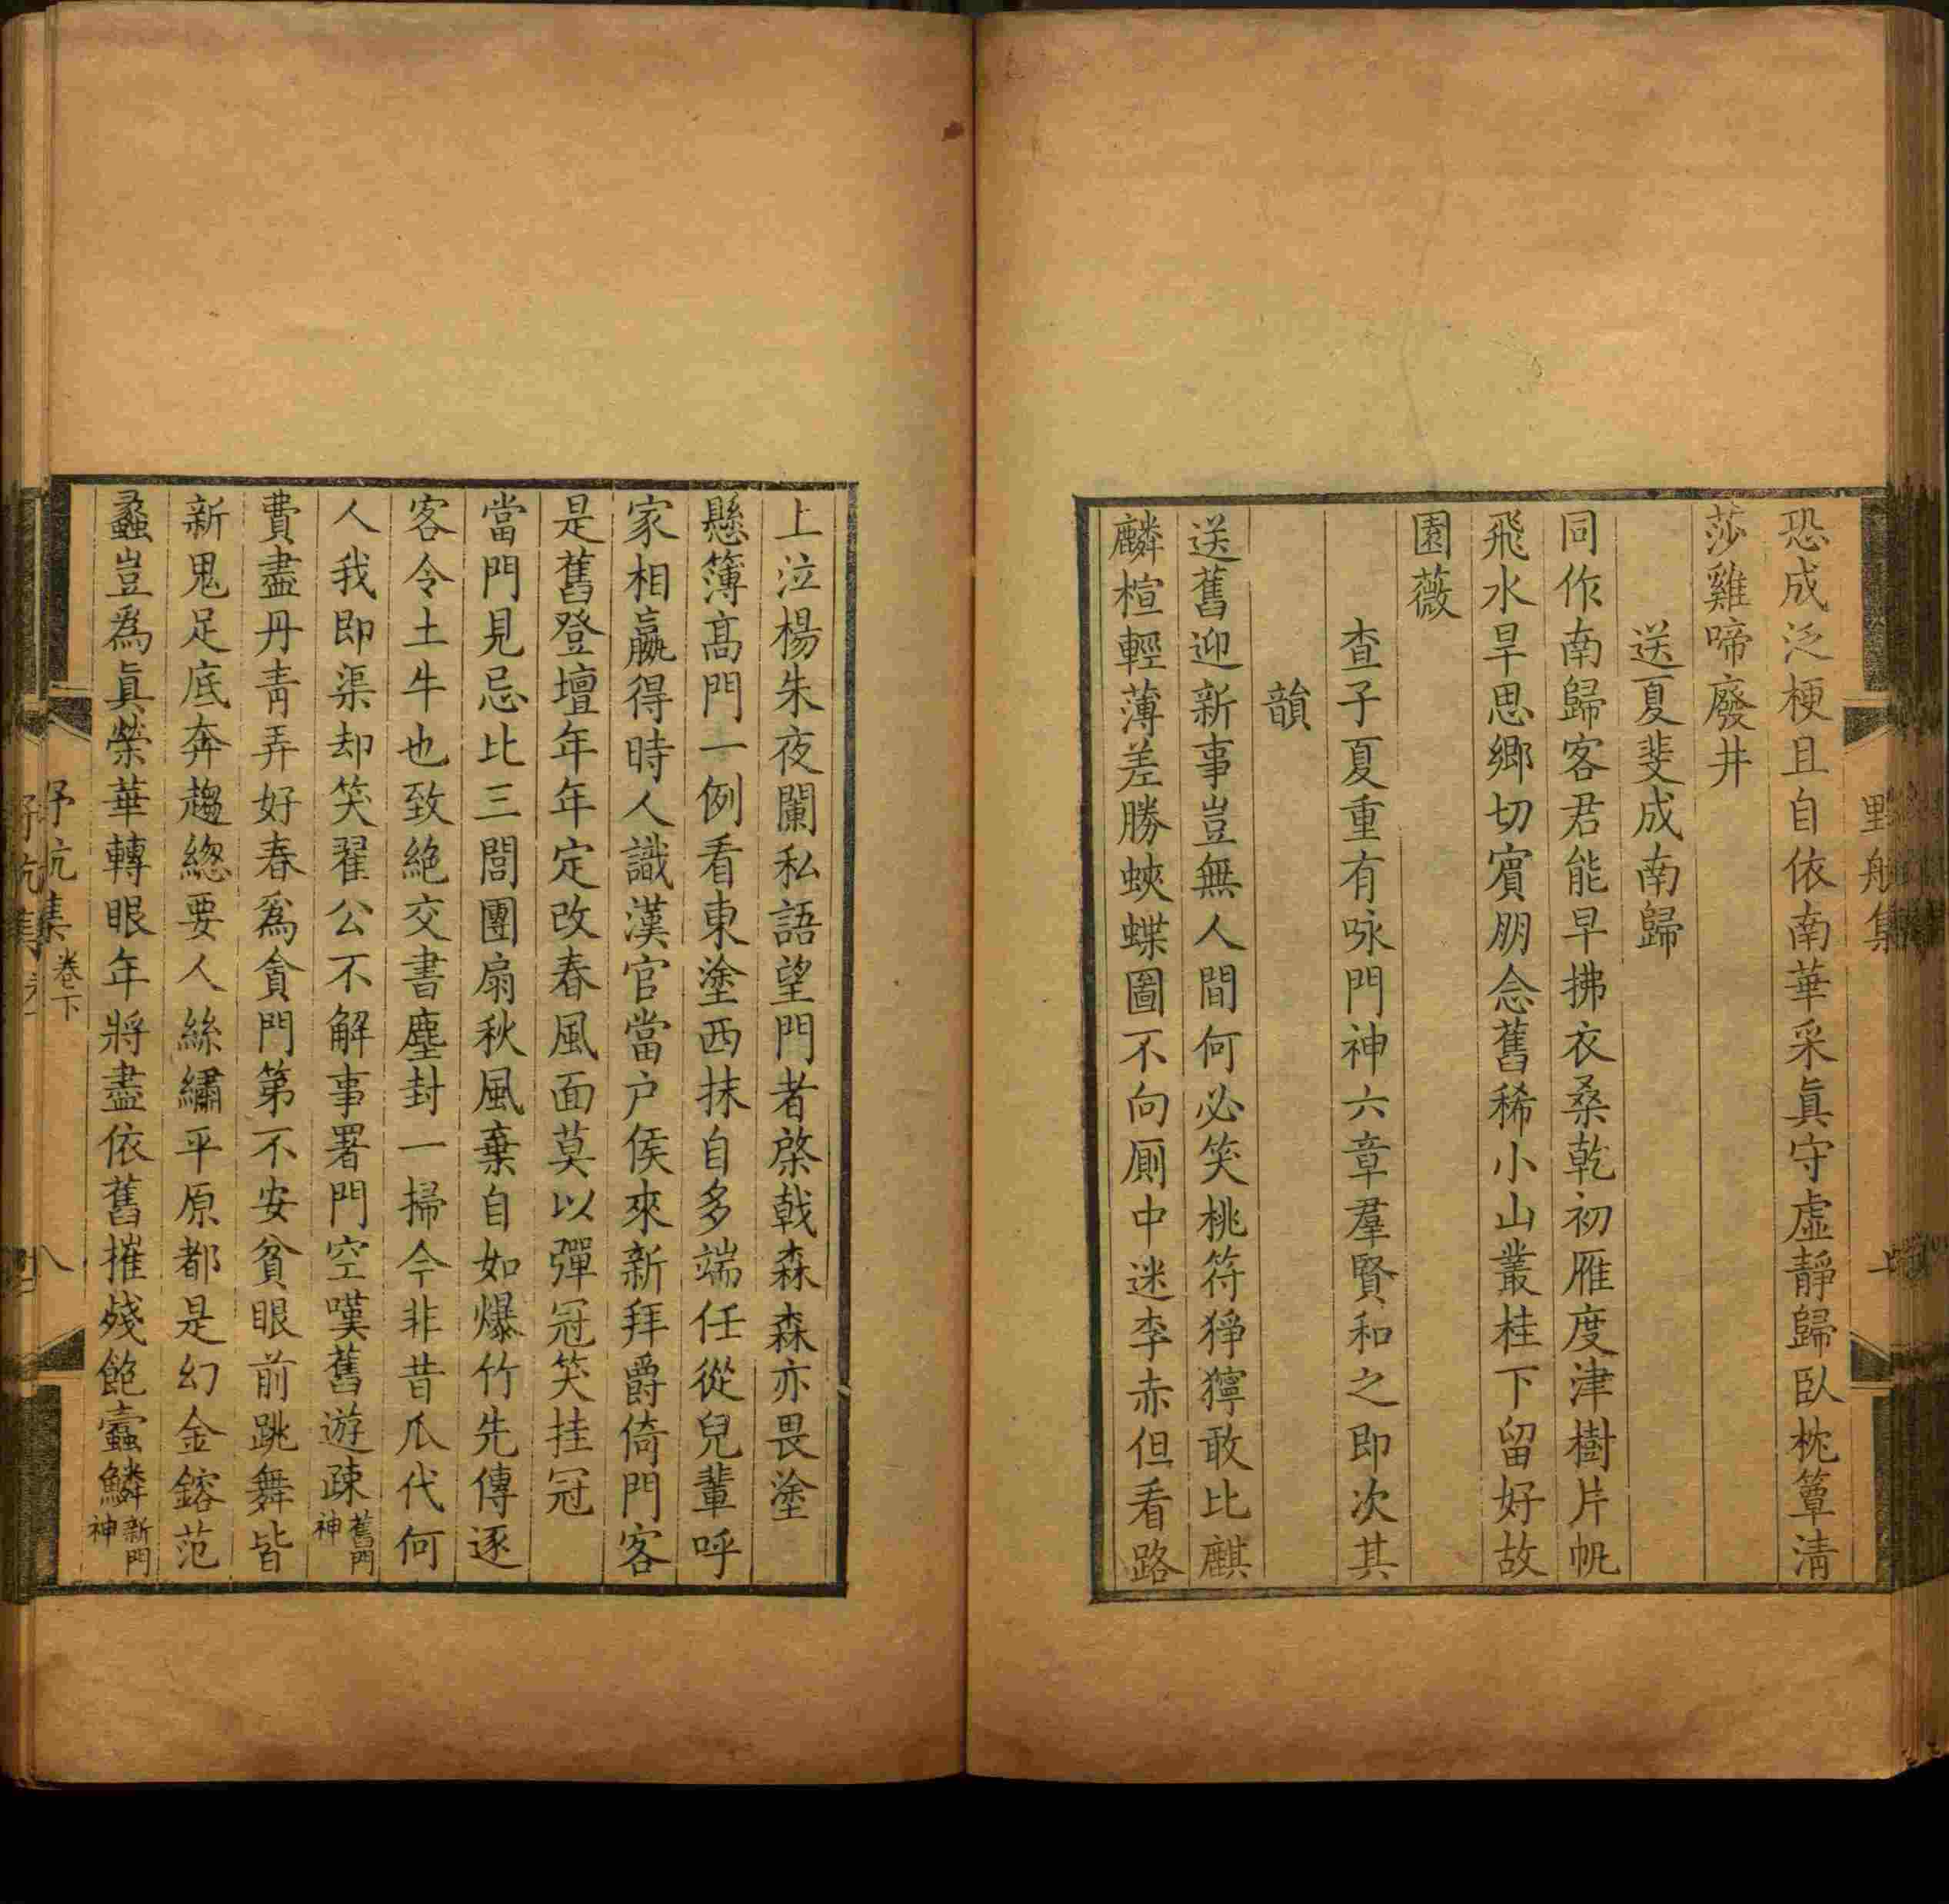 恐成泛梗且自依南華采眞守虛靜歸臥枕簟淸
莎雞啼廢井
送夏斐成南歸
同作南歸客君能早拂衣桑乾初雁度津樹片帆
飛水旱思鄉切賓朋念舊稀小山叢桂下留好故
園薇
查子夏重有咏門神六章羣賢和之即次其
韻
送舊迎新事豈無人間何必笑桃符猙獰敢比麒
麟楦輕薄差勝蛺蝶圖不向厠中迷李赤但看路
上泣楊朱夜闌私語望門者棨戟森森亦畏塗
懸簿高門一例看東塗西抹自多端任從兒輩呼
家相贏得時人識漢官當户侯來新拜爵倚門客
是舊登壇年年定改春風面莫以彈冠笑挂冠
當門見忌比三閭團扇秋風棄自如爆竹先傳逐
客令土牛也致絕交書塵封一掃今非昔瓜代何
人我即渠却笑翟公不解事署門空嘆舊遊疎舊門神
費盡丹青弄好春爲貪門第不安貧眼前跳舞皆
新鬼足底奔趨總要人絲繡平原都是幻金鎔范
蠡豈爲眞榮華轉眼年將盡依舊摧殘飽蠹鱗新門神
卷下
八